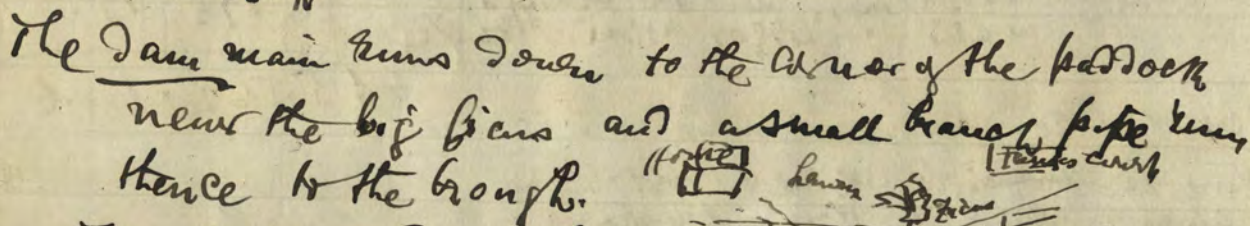 The dam main runs down to the corner of the paddock
near the big ficus and a small branch pipe runs
thence to the trough.
House
Tennis court
Lawn
ficus